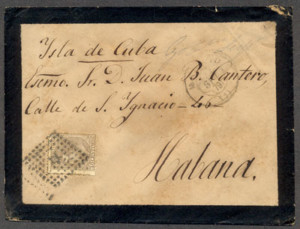 Isla de Cuba
Exmo. Sr. D. Juan B. Cantero,
Calle de S. Ignacio
Habana.